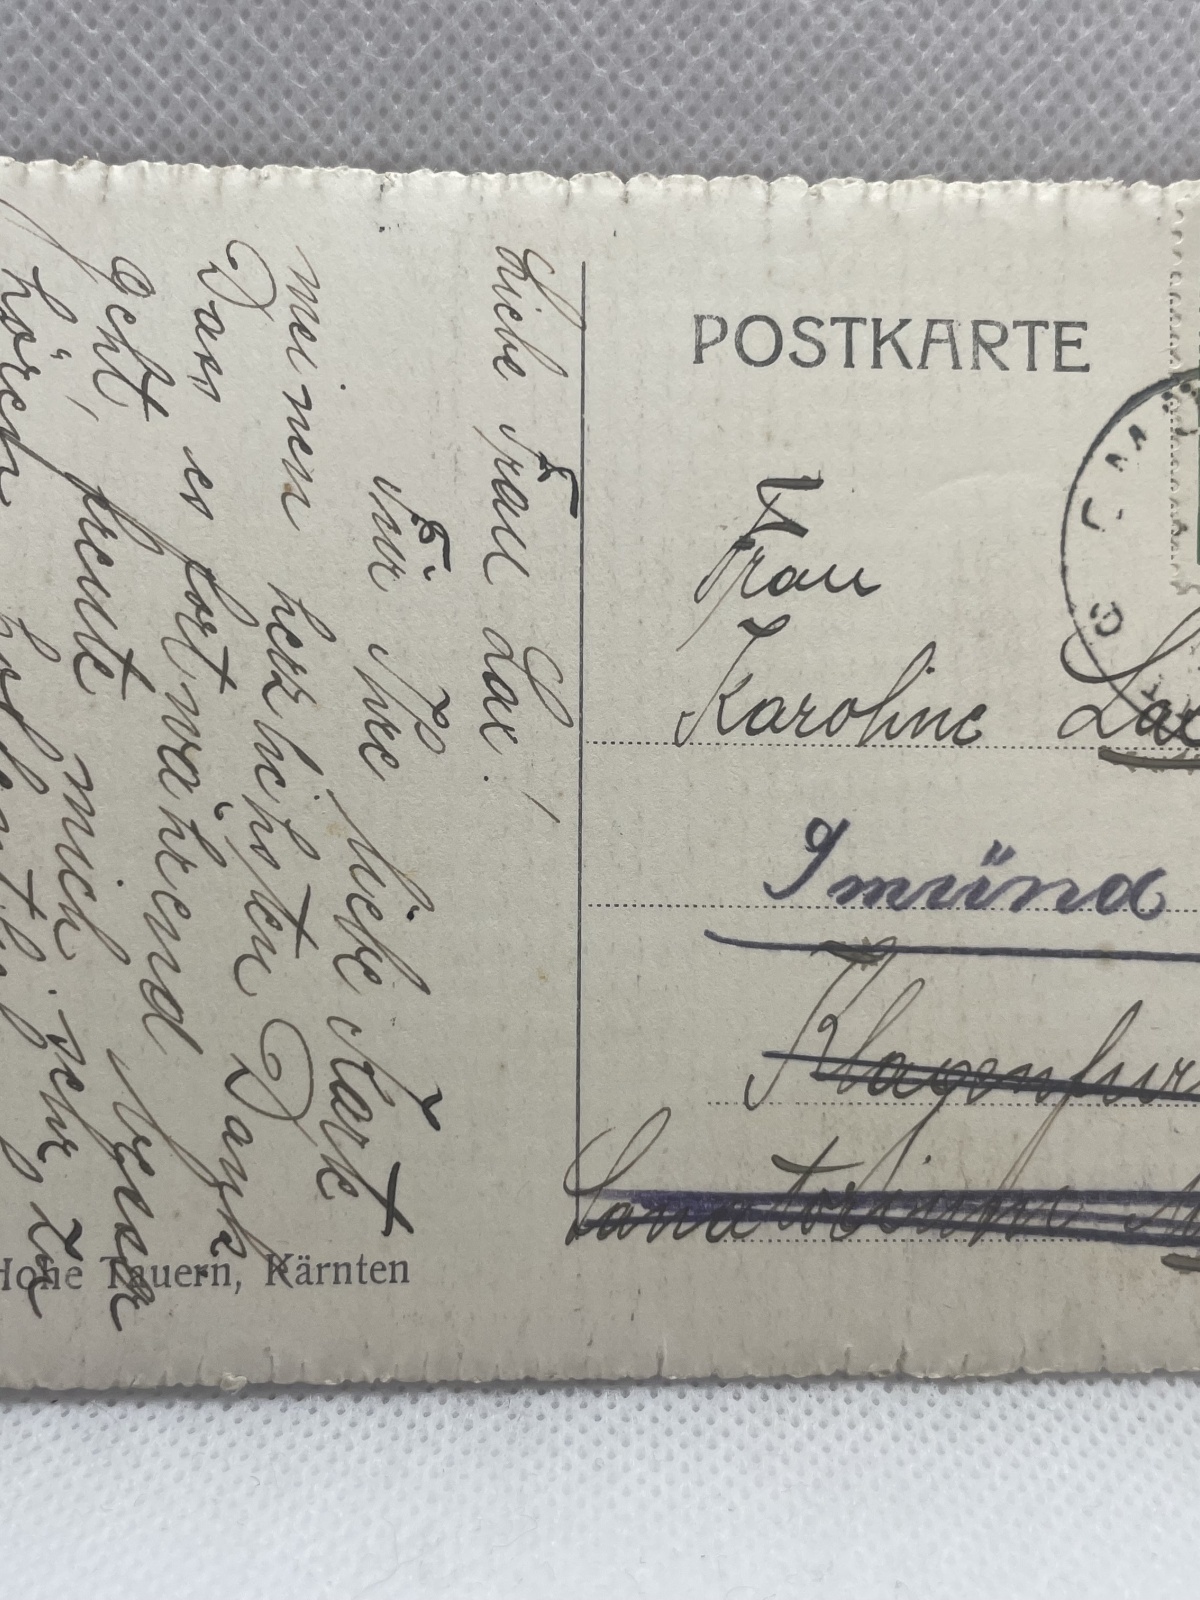 POSTKARTE
Frau
Karoline Lax
Gmünd
Klagenfur
Sanatorium
Liebe Frau Lax!
Für Ihre liebe Karte
meinen herzlichsten Dank.
Dass es fortwährend besser
geht, freute mich sehr zu
hören
Hohe Tauern, Kärnten